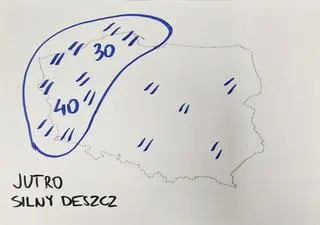 30
40
JUTRO
SILNY DESZCZ